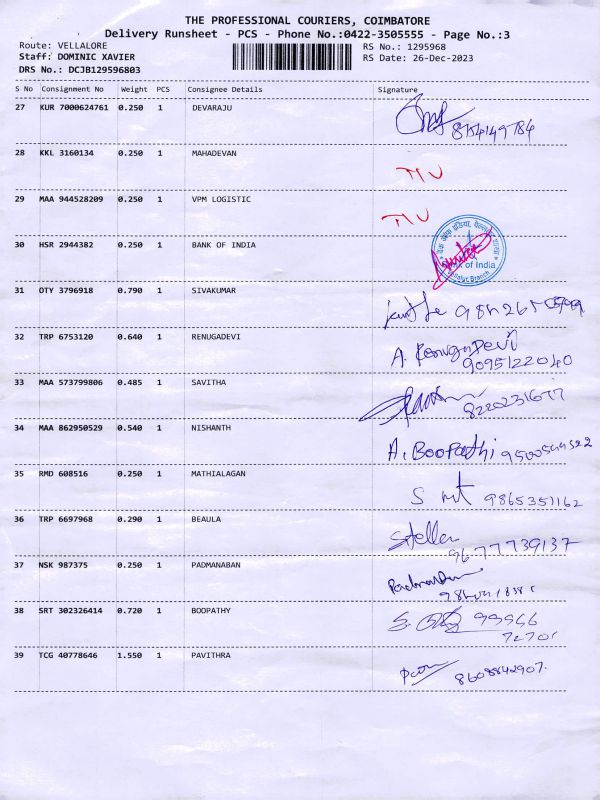 THE PROFESSIONAL COURIERS, COIMBATORE
Delivery Runsheet - PCS - Phone No.:0422-3505555 - Page No.:3
Route: VELLALORE RS No.: 1295968
Staff: DOMINIC XAVIER RS Date: 26-Dec-2023
DRS No.: DCJB129596803
S No Consignment No Weight PCS Consignee Details Signature
27 KUR 7000624761 0.250 1 DEVARAJU
28 KKL 3160134 0.250 1 MAHADEVAN
29 MAA 944528209 0.250 1 VPM LOGISTIC
30 HSR 2944382 0.250 1 BANK OF INDIA
of India
Branch
31 OTY 3796918 0.790 1 SIVAKUMAR
32 TRP 6753120 0.640 1 RENUGADEVI A. RenugaDevi
9095122040
33 MAA 573799806 0.485 1 SAVITHA
34 MAA 862950529 0.540 1 NISHANTH A. Boopathi
35 RMD 608516 0.250 1 MATHIALAGAN 9865351162
36 TRP 6697968 0.290 1 BEAULA Stella
9677739137
37 NSK 987375 0.250 1 PADMANABAN
38 SRT 302326414 0.720 1 BOOPATHY
39 TCG 40778646 1.550 1 PAVITHRA 8608842907.